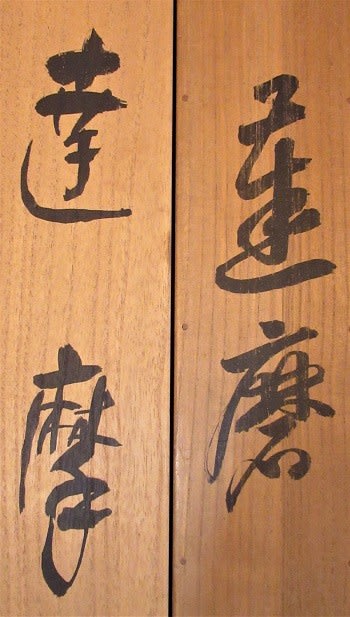 達磨
達摩